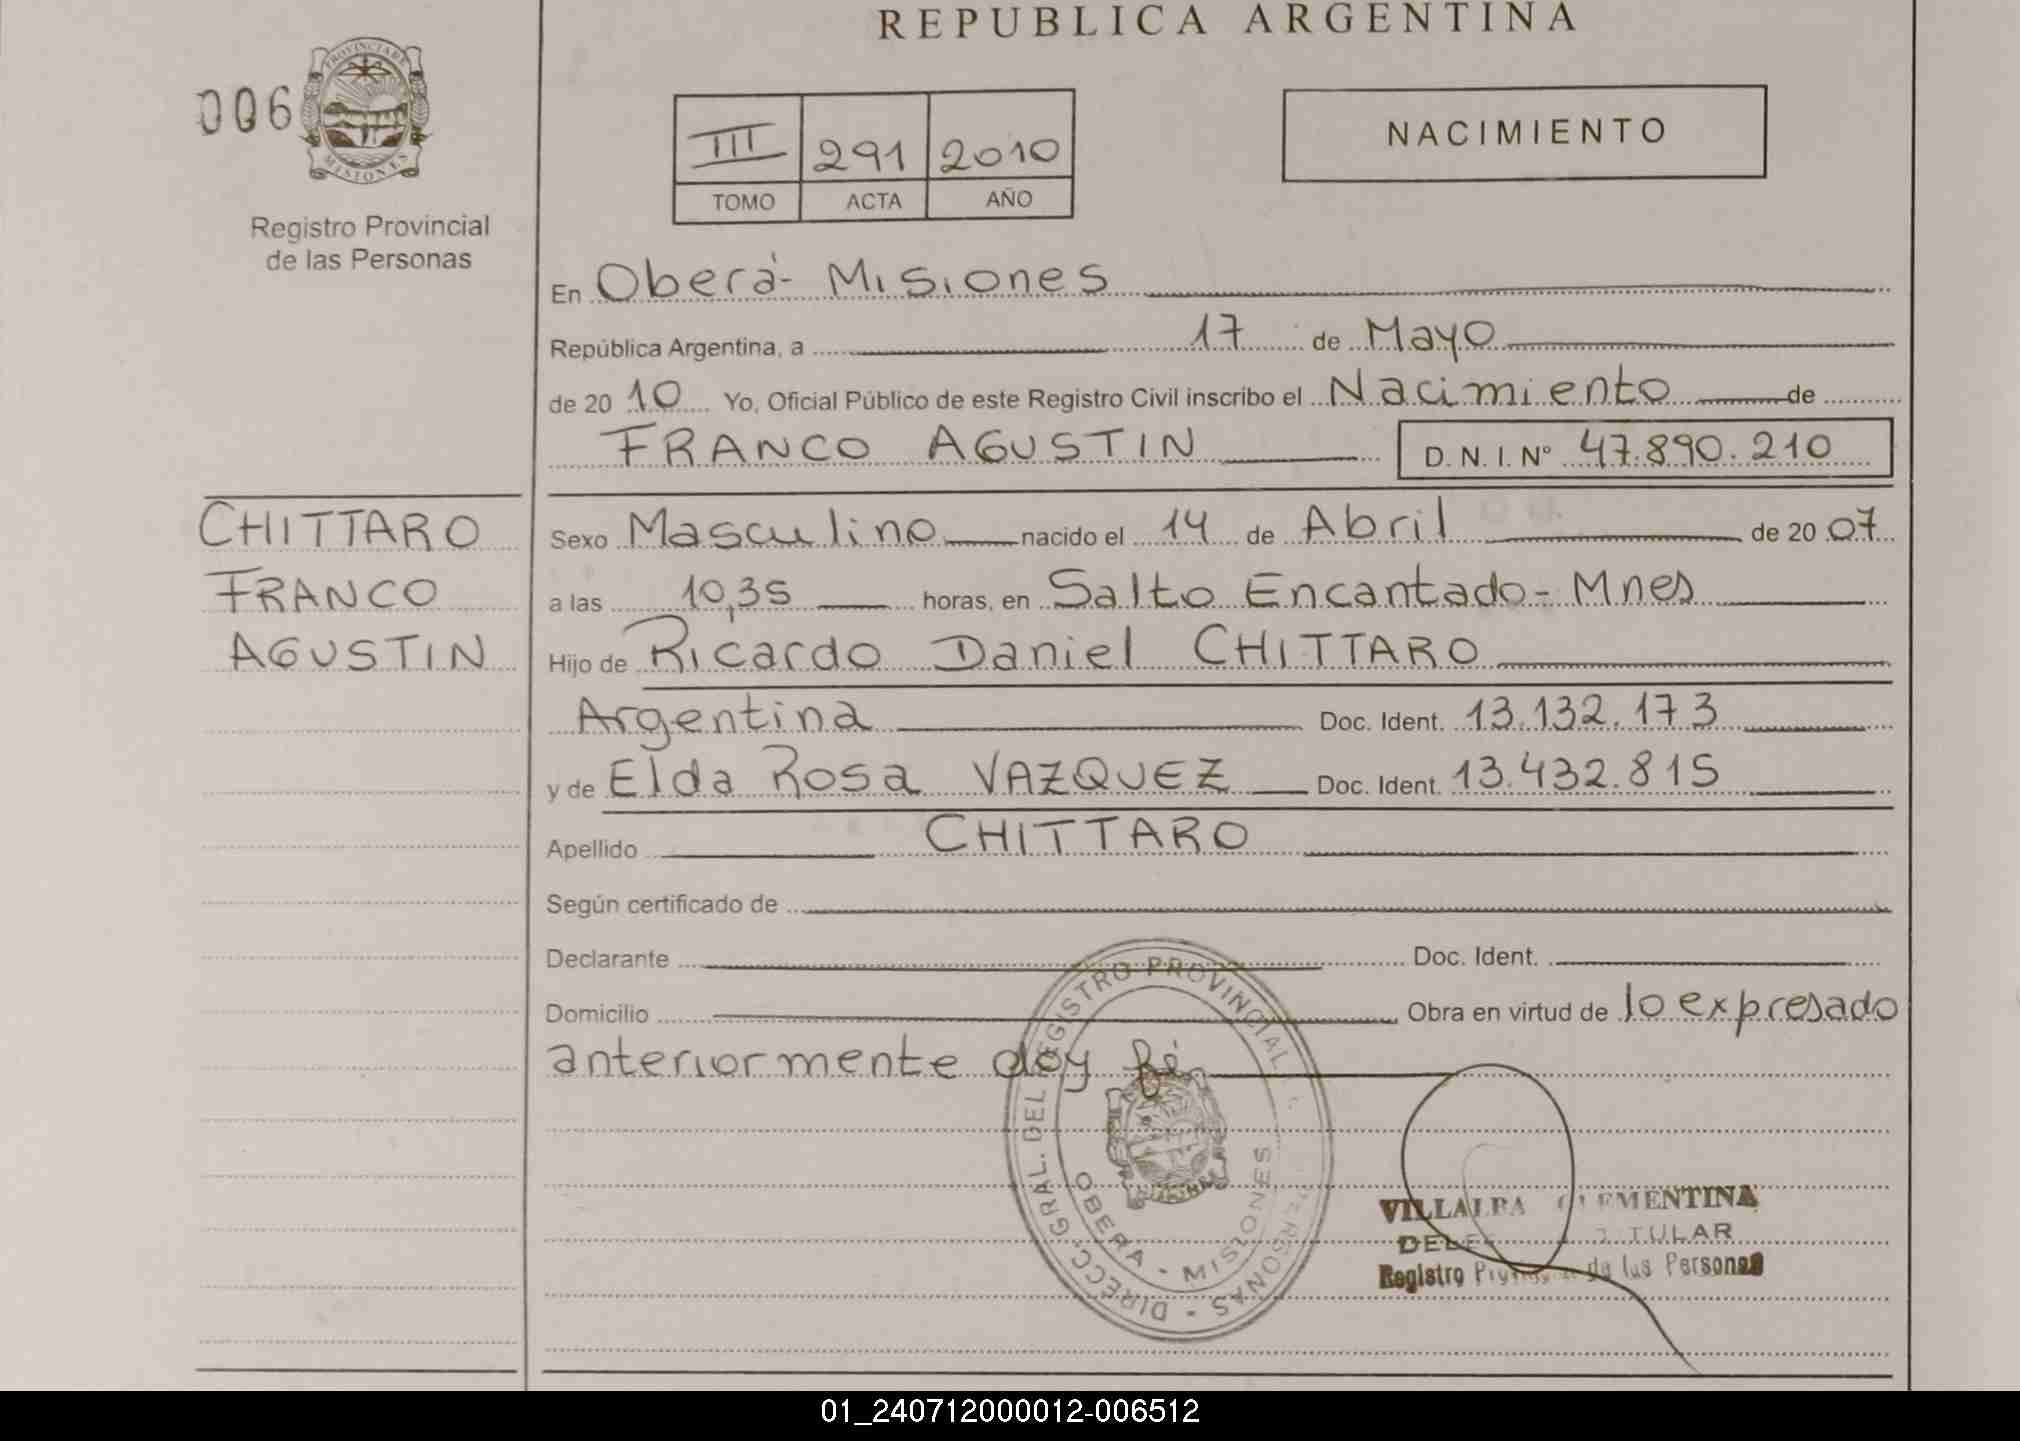 REPUBLICA ARGENTINA
006
PROVINCIA DE
MISIONES
Registro Provincial
de las Personas
III 291 2010
TOMO ACTA AÑO
NACIMIENTO
En Oberá - Misiones
República Argentina, a 17 de Mayo
de 20 10 Yo, Oficial Público de este Registro Civil inscribo el Nacimiento de
FRANCO AGUSTIN D.N.I. Nº 47.890.210
CHITTARO
FRANCO
AGUSTIN
Sexo Masculino nacido el 14 de Abril de 20 07
a las 10,35 horas, en Salto Encantado - Mnes
Hijo de Ricardo Daniel CHITTARO
Argentina Doc. Ident. 13.132.173
y de Elda Rosa VAZQUEZ Doc. Ident. 13.432.815
Apellido CHITTARO
Según certificado de
Declarante Doc. Ident.
Domicilio Obra en virtud de lo expresado
anteriormente doy fé
DIRECC. GRAL. DEL REGISTRO PROVINCIAL PERSONAS
OBERA - MISIONES
VILLALBA CLEMENTINA
TULAR
Registro de las Personas
01_240712000012-006512